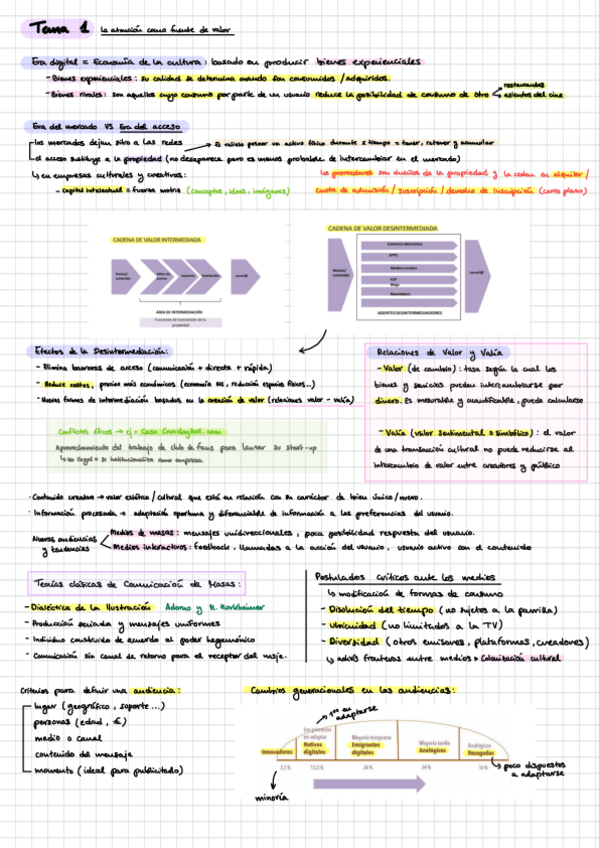 Tema 1 la atención como fuente de valor
Era digital = Economía de la cultura: basado en producir bienes experienciales
- Bienes experienciales: su calidad se determina cuando son consumidos / adquiridos.
- Bienes rivales: son aquellos cuyo consumo por parte de un usuario reduce la posibilidad de consumo de otro
restaurantes
asientos del cine
Era del mercado VS Era del acceso
los mercados dejan sitio a las redes
es valioso poseer un activo físico durante x tiempo = tener, retener y acumular
el acceso sustituye a la propiedad (no desaparece pero es menos probable de intercambiar en el mercado)
↳ en empresas culturales y creativas:
- Capital intelectual = fuerza motriz (conceptos, ideas, imágenes)
los proveedores son dueños de la propiedad y la ceden en alquiler /
cuota de admisión / suscripción / derecho de inscripción (corto plazo)
CADENA DE VALOR INTERMEDIADA
ÁREA DE INTERMEDIACIÓN
Funciones de transmisión de la propiedad
CADENA DE VALOR DESINTERMEDIADA
Comercio electrónico
APPS
Medios sociales
P2P
Blogs
Newsletters
AGENTES DESINTERMEDIADORES
Efectos de la Desintermediación:
- Elimina barreras de acceso (comunicación + directa + rápida)
- Reduce costes, precios más económicos (economía esc, reducción espacios físicos...)
- Nuevas formas de intermediación basados en la creación de valor (relaciones valor - valía)
Relaciones de Valor y Valía
- Valor (de cambio): tasa según la cual los
bienes y servicios pueden intercambiarse por
dinero. Es mesurable y cuantificable, puede calcularse
- Valía (valor sentimental o simbólico): el valor
de una transacción cultural no puede reducirse al
intercambio de valor entre creadores y público
Conflictos éticos → ej: Caso Crowdaybed.com
Aprovechamiento del trabajo de clubs de fans para lanzar su start-up
↳ no ilegal = se institucionaliza como empresa
· Contenido creativo → valor estético / cultural que está en relación con su carácter de bien único / nuevo.
· Información procesada → adaptación oportuna y diferenciable de información a las preferencias del usuario.
Nuevas audiencias
y tendencias
Medios de masas: mensajes unidireccionales, poca posibilidad respuesta del usuario.
Medios interactivos: feedback, llamadas a la acción del usuario, usuario activo con el contenido
Teorías clásicas de Comunicación de Masas:
- Dialéctica de la Ilustración Adorno y H. Horkheimer
- Producción seriada y mensajes uniformes
- Individuo construido de acuerdo al poder hegemónico
- Comunicación sin canal de retorno para el receptor del msje.
Postulados críticos ante los medios
↳ modificación de formas de consumo
- Disolución del tiempo (no sujetos a la parrilla)
- Ubicuidad (no limitados a la TV)
- Diversidad (otros emisores, plataformas, creadores)
↳ adiós fronteras entre medios = Colonización cultural
Criterios para definir una audiencia:
lugar (geográfico, soporte...)
personas (edad, €)
medio o canal
contenido del mensaje
momento (ideal para publicitado)
Cambios generacionales en las audiencias:
1ºs en adaptarse
Innovadores
Los primeros en adoptar
Nativos digitales
Mayoría temprana
Emigrantes digitales
Mayoría tardía
Analógicos
Analógicos
Rezagados
2,5 % 13,5 % 34 % 34 % 16 %
minoría
poco dispuestos
a adaptarse